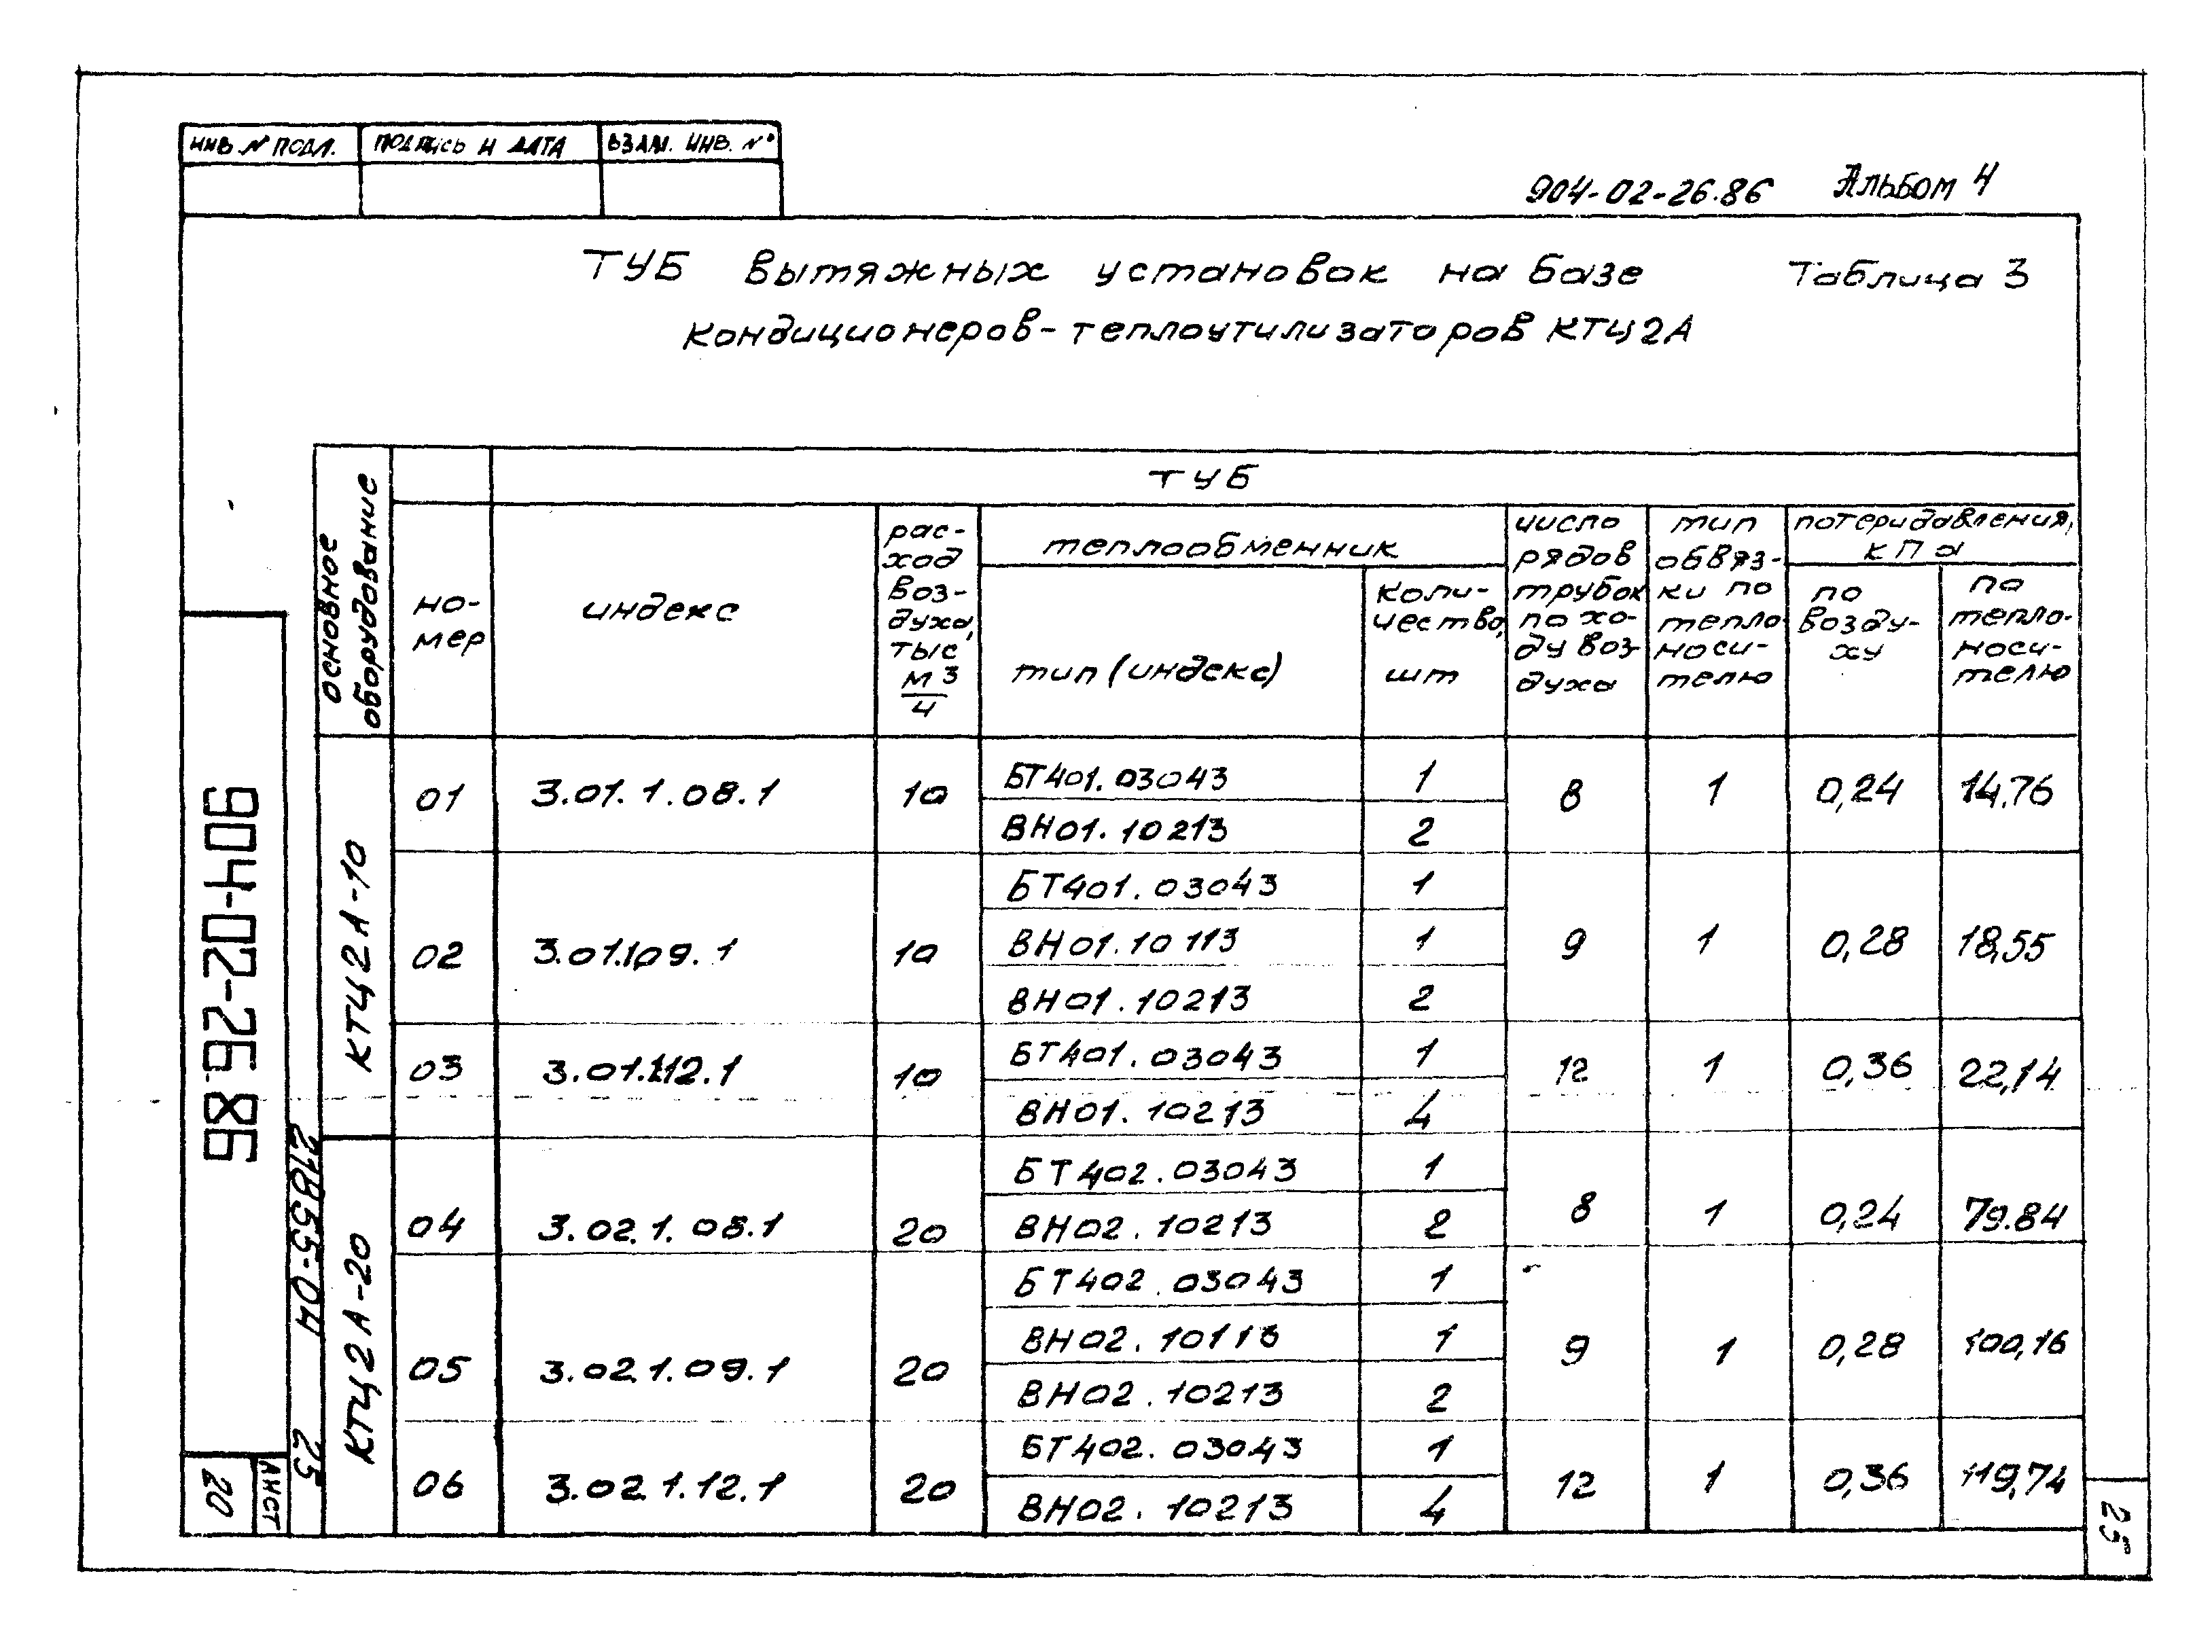 ИНВ. N ПОДЛ. ПОДПИСЬ И ДАТА ВЗАМ. ИНВ. N°
904-02-26.86 Альбом 4
ТУБ вытяжных установок на базе Таблица 3
кондиционеров-теплоутилизаторов КТЦ2А
основное оборудование
но-
мер
ТУБ
индекс
рас-
ход
воз-
духа,
тыс
м3
ч
теплообменник
тип (индекс)
коли-
чество,
шт
число
рядов
трубок
по хо-
ду воз-
духа
тип
обвяз-
ки по
тепло
носи-
телю
потери давления,
кПа
по
возду-
ху
по
тепло-
носи-
телю
КТЦ2А-10
01 3.01.1.08.1 10 БТ401.03043 1 8 1 0,24 14.76
ВН01.10213 2
02 3.01.1.09.1 10 БТ401.03043 1 9 1 0,28 18,55
ВН01.10113 1
ВН01.10213 2
03 3.01.1.12.1 10 БТ401.03043 1 12 1 0,36 22,14
ВН01.10213 4
КТЦ2А-20
04 3.02.1.08.1 20 БТ402.03043 1 8 1 0,24 79.84
ВН02.10213 2
05 3.02.1.09.1 20 БТ402.03043 1 9 1 0,28 100,16
ВН02.10113 1
ВН02.10213 2
06 3.02.1.12.1 20 БТ402.03043 1 12 1 0,36 119,74
ВН02.10213 4
904-02-26.86
21855-04 25
ЛИСТ
20
25